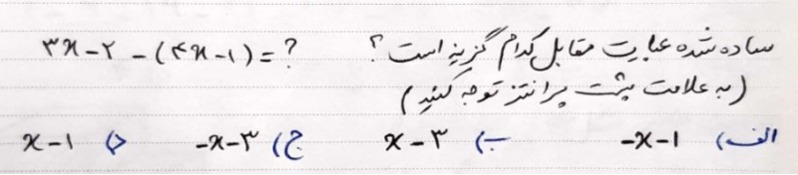 ساده شده عبارت مقابل کدام گزینه است؟ ۳x-۲-(۴x-۱)=?
(به علامت پشت پرانتز توجه کنید)
الف) -x-۱ ب) x-۳ ج) -x-۳ د) x-۱